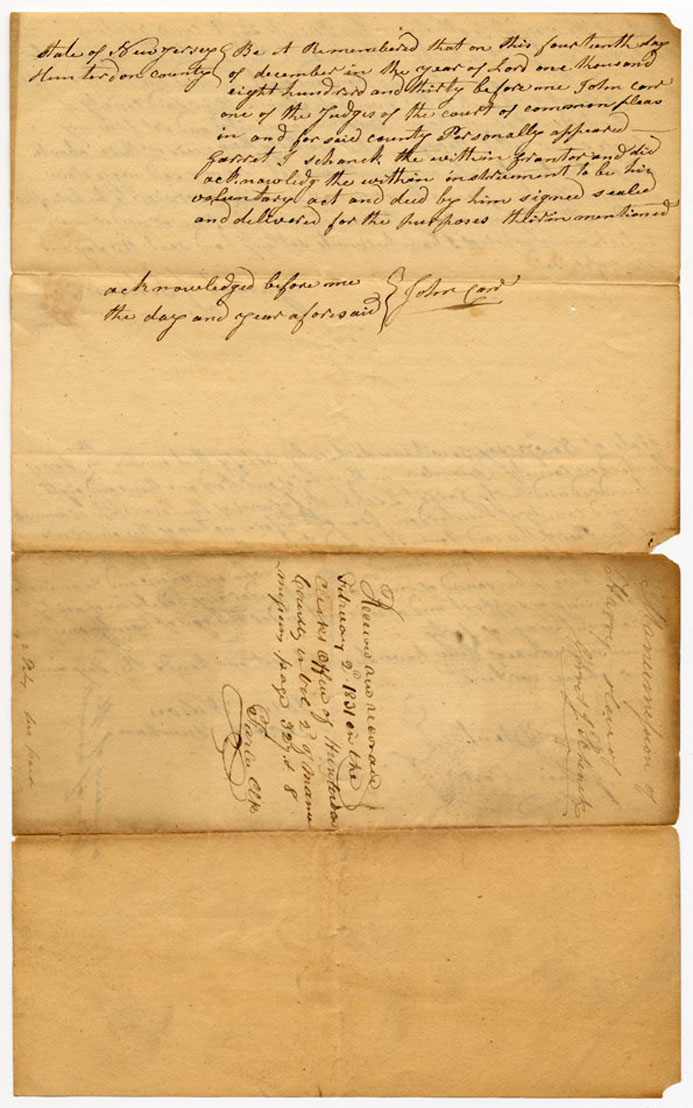 State of New Jersey { Be it Remembered that on this fourteenth day
Hunterdon County { of december in the year of Lord one thousand
eight hundred and thirty before me John Carr
one of the Judges of the court of common pleas
in and for said county Personally appeared
Garret J Schanck the within grantor and did
acknowledg the within instrument to be his
voluntary act and deed by him signed sealed
and delivered for the purposes therin mentioned
acknowledged before me { John Carr
the day and year aforesaid
Manumission of
Harry slave of
Garret J Schenck
Received and recorded
February 2d 1831 in the
Clerks Office of Hunterdon
County in Vol 2d of Manu
missions page 327 & 8
Clk